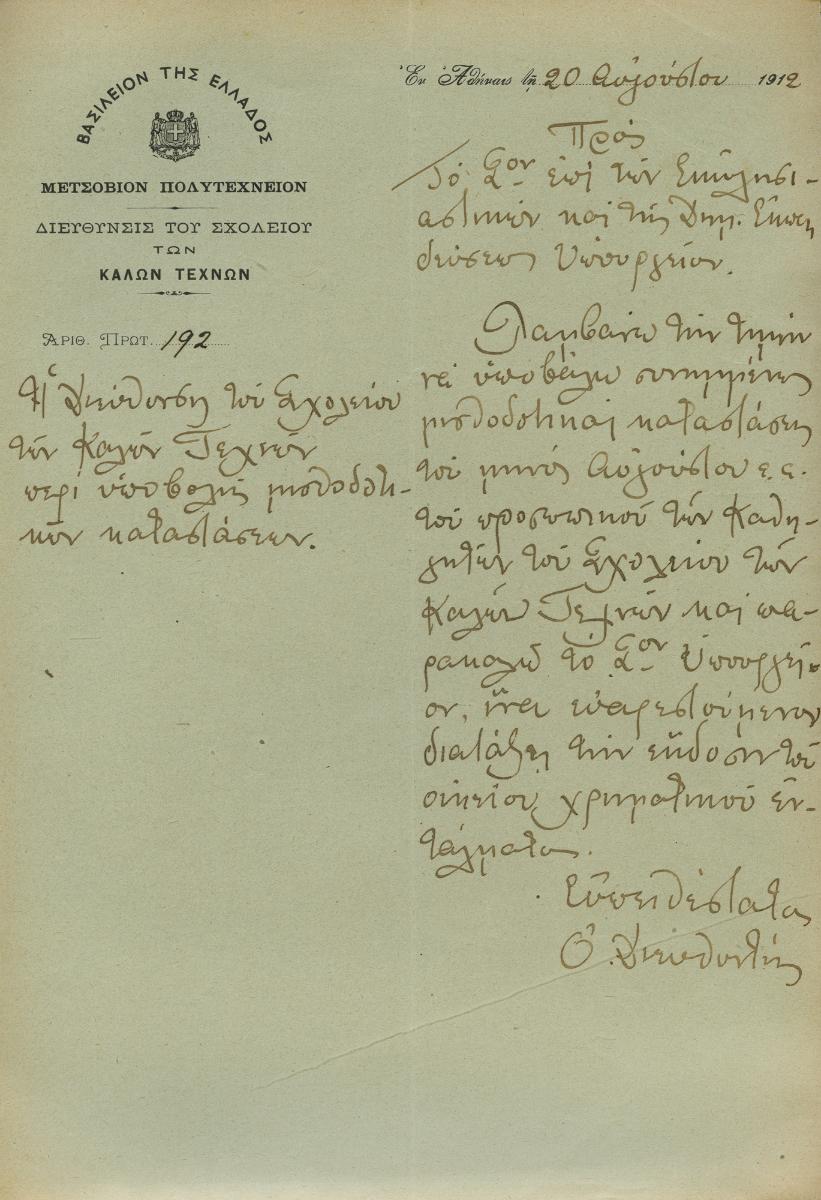 ΒΑΣΙΛΕΙΟΝ ΤΗΣ ΕΛΛΑΔΟΣ
ΜΕΤΣΟΒΙΟΝ ΠΟΛΥΤΕΧΝΕΙΟΝ
ΔΙΕΥΘΥΝΣΙΣ ΤΟΥ ΣΧΟΛΕΙΟΥ
ΤΩΝ
ΚΑΛΩΝ ΤΕΧΝΩΝ
ΑΡΙΘ. ΠΡΩΤ. 192
Ἡ Διεύθυνσις τοῦ Σχολείου
τῶν Καλῶν Τεχνῶν
περὶ ὑποβολῆς μισθοδοτι-
κῶν καταστάσεων.
Ἐν Ἀθήναις τῇ 20 Αὐγούστου 1912
Πρὸς
Τὸ Σον ἐπὶ τῶν Ἐκκλησι-
αστικῶν καὶ τῆς Δημ. Ἐκπαι
δεύσεως Ὑπουργεῖον.
Λαμβάνω τὴν τιμὴν
νὰ ὑποβάλω συνημμένως
μισθοδοτικὰς καταστάσεις
τοῦ μηνὸς Αὐγούστου ἐ.ἔ.
τοῦ προσωπικοῦ τῶν Καθη-
γητῶν τοῦ Σχολείου τῶν
Καλῶν Τεχνῶν καὶ πα-
ρακαλῶ τὸ Σον Ὑπουργεῖ-
ον, ἵνα εὐαρεστούμενον
διατάξῃ τὴν ἔκδοσιν τοῦ
οἰκείου χρηματικοῦ ἐν-
τάλματος.
Εὐπειθέστατος
Ὁ Διευθυντὴς